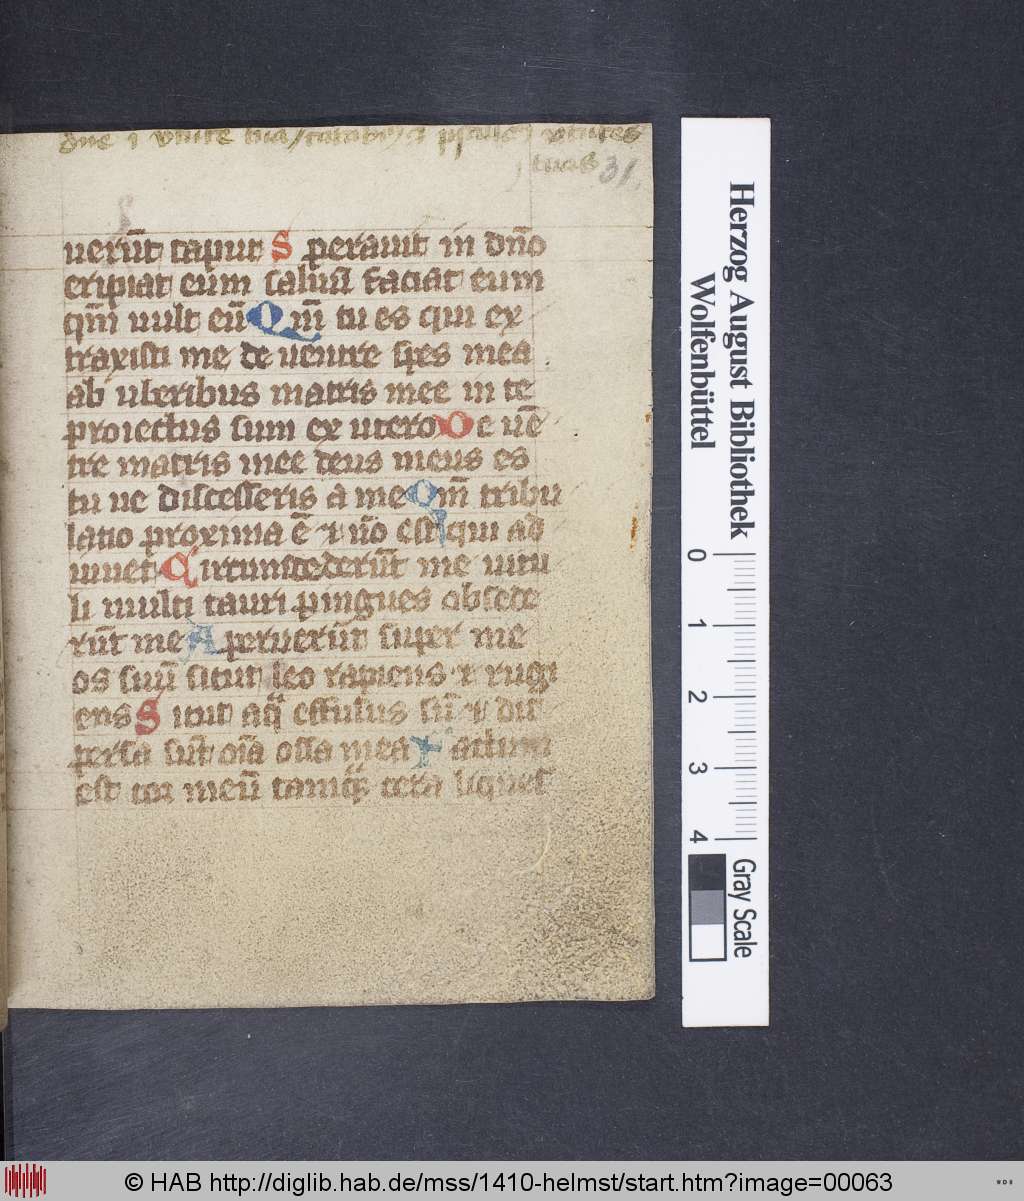 dne i v̄tute tua / cātabim9 ⁊ psallem9 v̄tutes
tuas 31.
uerūt caput S perauit in dn̄o
eripiat eum saluū faciat eum
qm̄ uult eū Q m̄ tu es qui ex
traxisti me de uentre spes mea
ab uberibus matris mee in te
proiectus sum ex utero D e uē
tre matris mee deus meus es
tu ne discesseris a me Q m̄ tribu
latio proxima ē ⁊ nō est qui ad
iuuet C ircumdederūt me uitu
li multi tauri pingues obsede
rūt me A peruerūt super me
os suū sicut leo rapiens ⁊ rugi
ens S icut aqͣ effusus sū ⁊ dis
persa sūt oīa ossa mea F actum
est cor meū tamqͣ cera liquesc
Herzog August Bibliothek
Wolfenbüttel
0 1 2 3 4
Gray Scale
© HAB http://diglib.hab.de/mss/1410-helmst/start.htm?image=00063